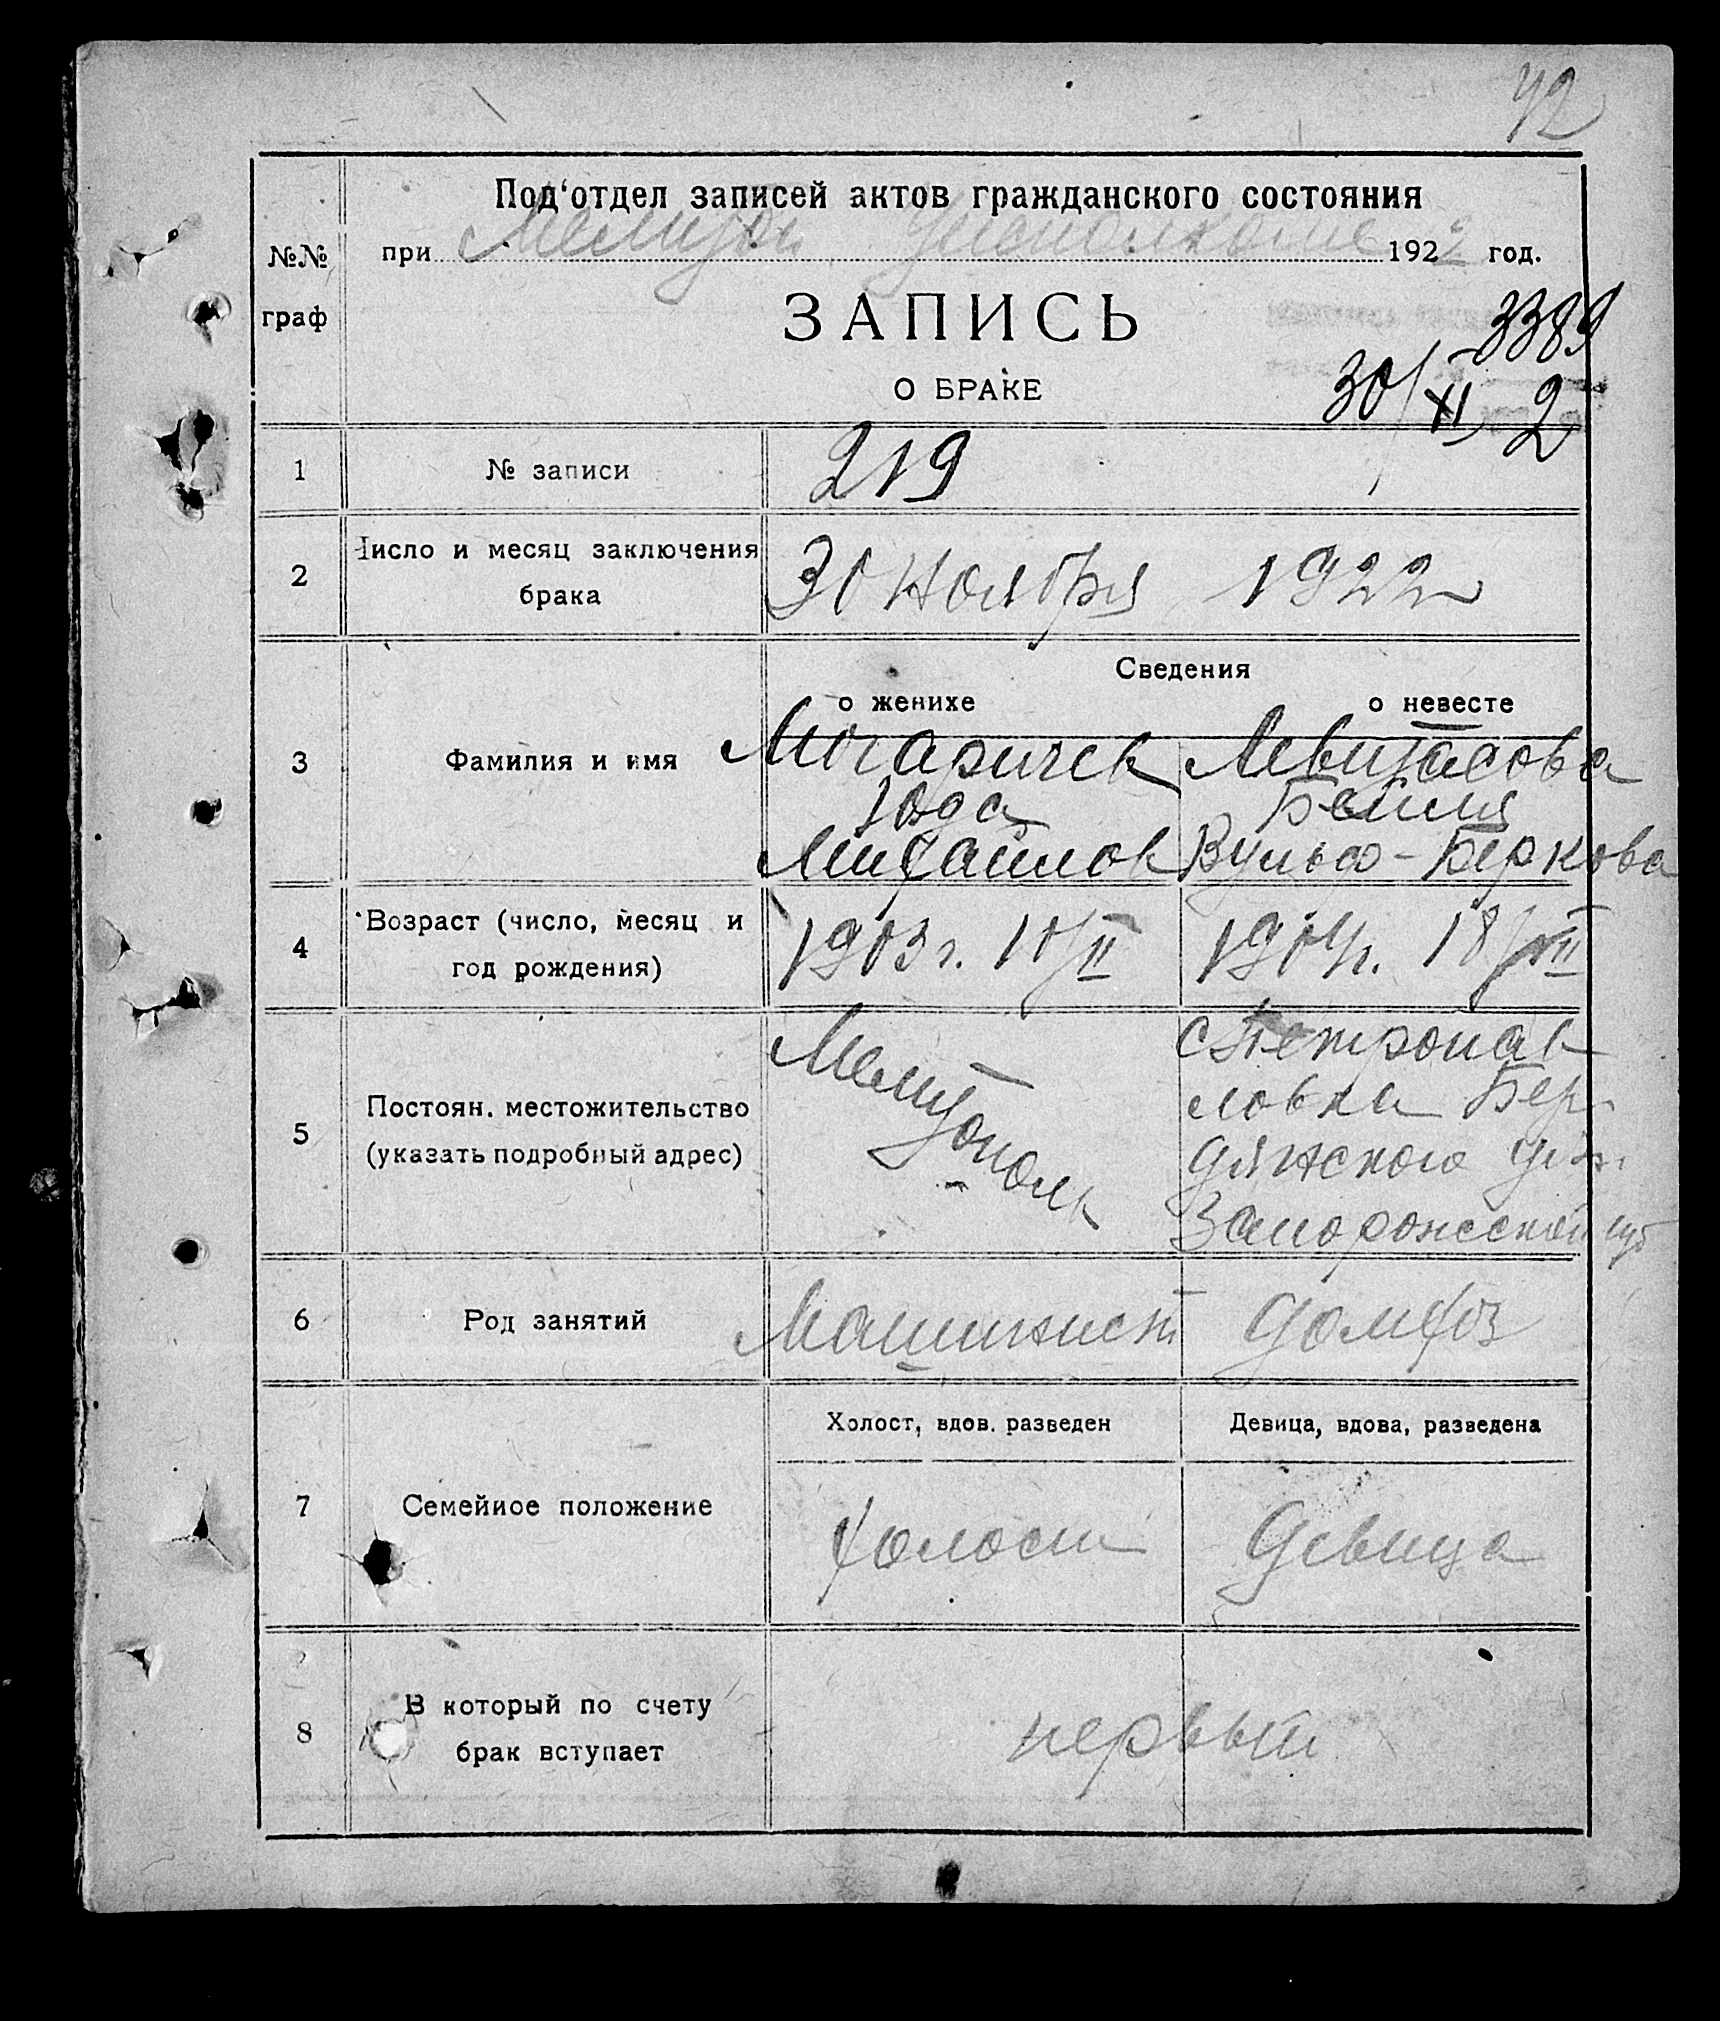 42
Под'отдел записей актов гражданского состояния
при Мелитоп Уисполкоме 1922 год.
№№
граф
ЗАПИСЬ
3389
О БРАКЕ
30/XI 2
1 № записи 219
2 Число и месяц заключения
брака
30 Ноября 1922
Сведения
о женихе о невесте
3 Фамилия и имя Мичаричев Левитасова
Юда Бейля
Михайлов Вульфо-Беркова
4 Возраст (число, месяц и
год рождения)
1903 г. 10/II 1904 г. 18/
5 Постоян. местожительство
(указать подробный адрес)
Мелитополь
с Петропав
ловка Бер
дянского уез.
Запорожской губ
6 Род занятий Машинист домхоз
Холост, вдов. разведен Девица, вдова, разведена
7 Семейное положение холост Девица
8 В который по счету
брак вступает
первый